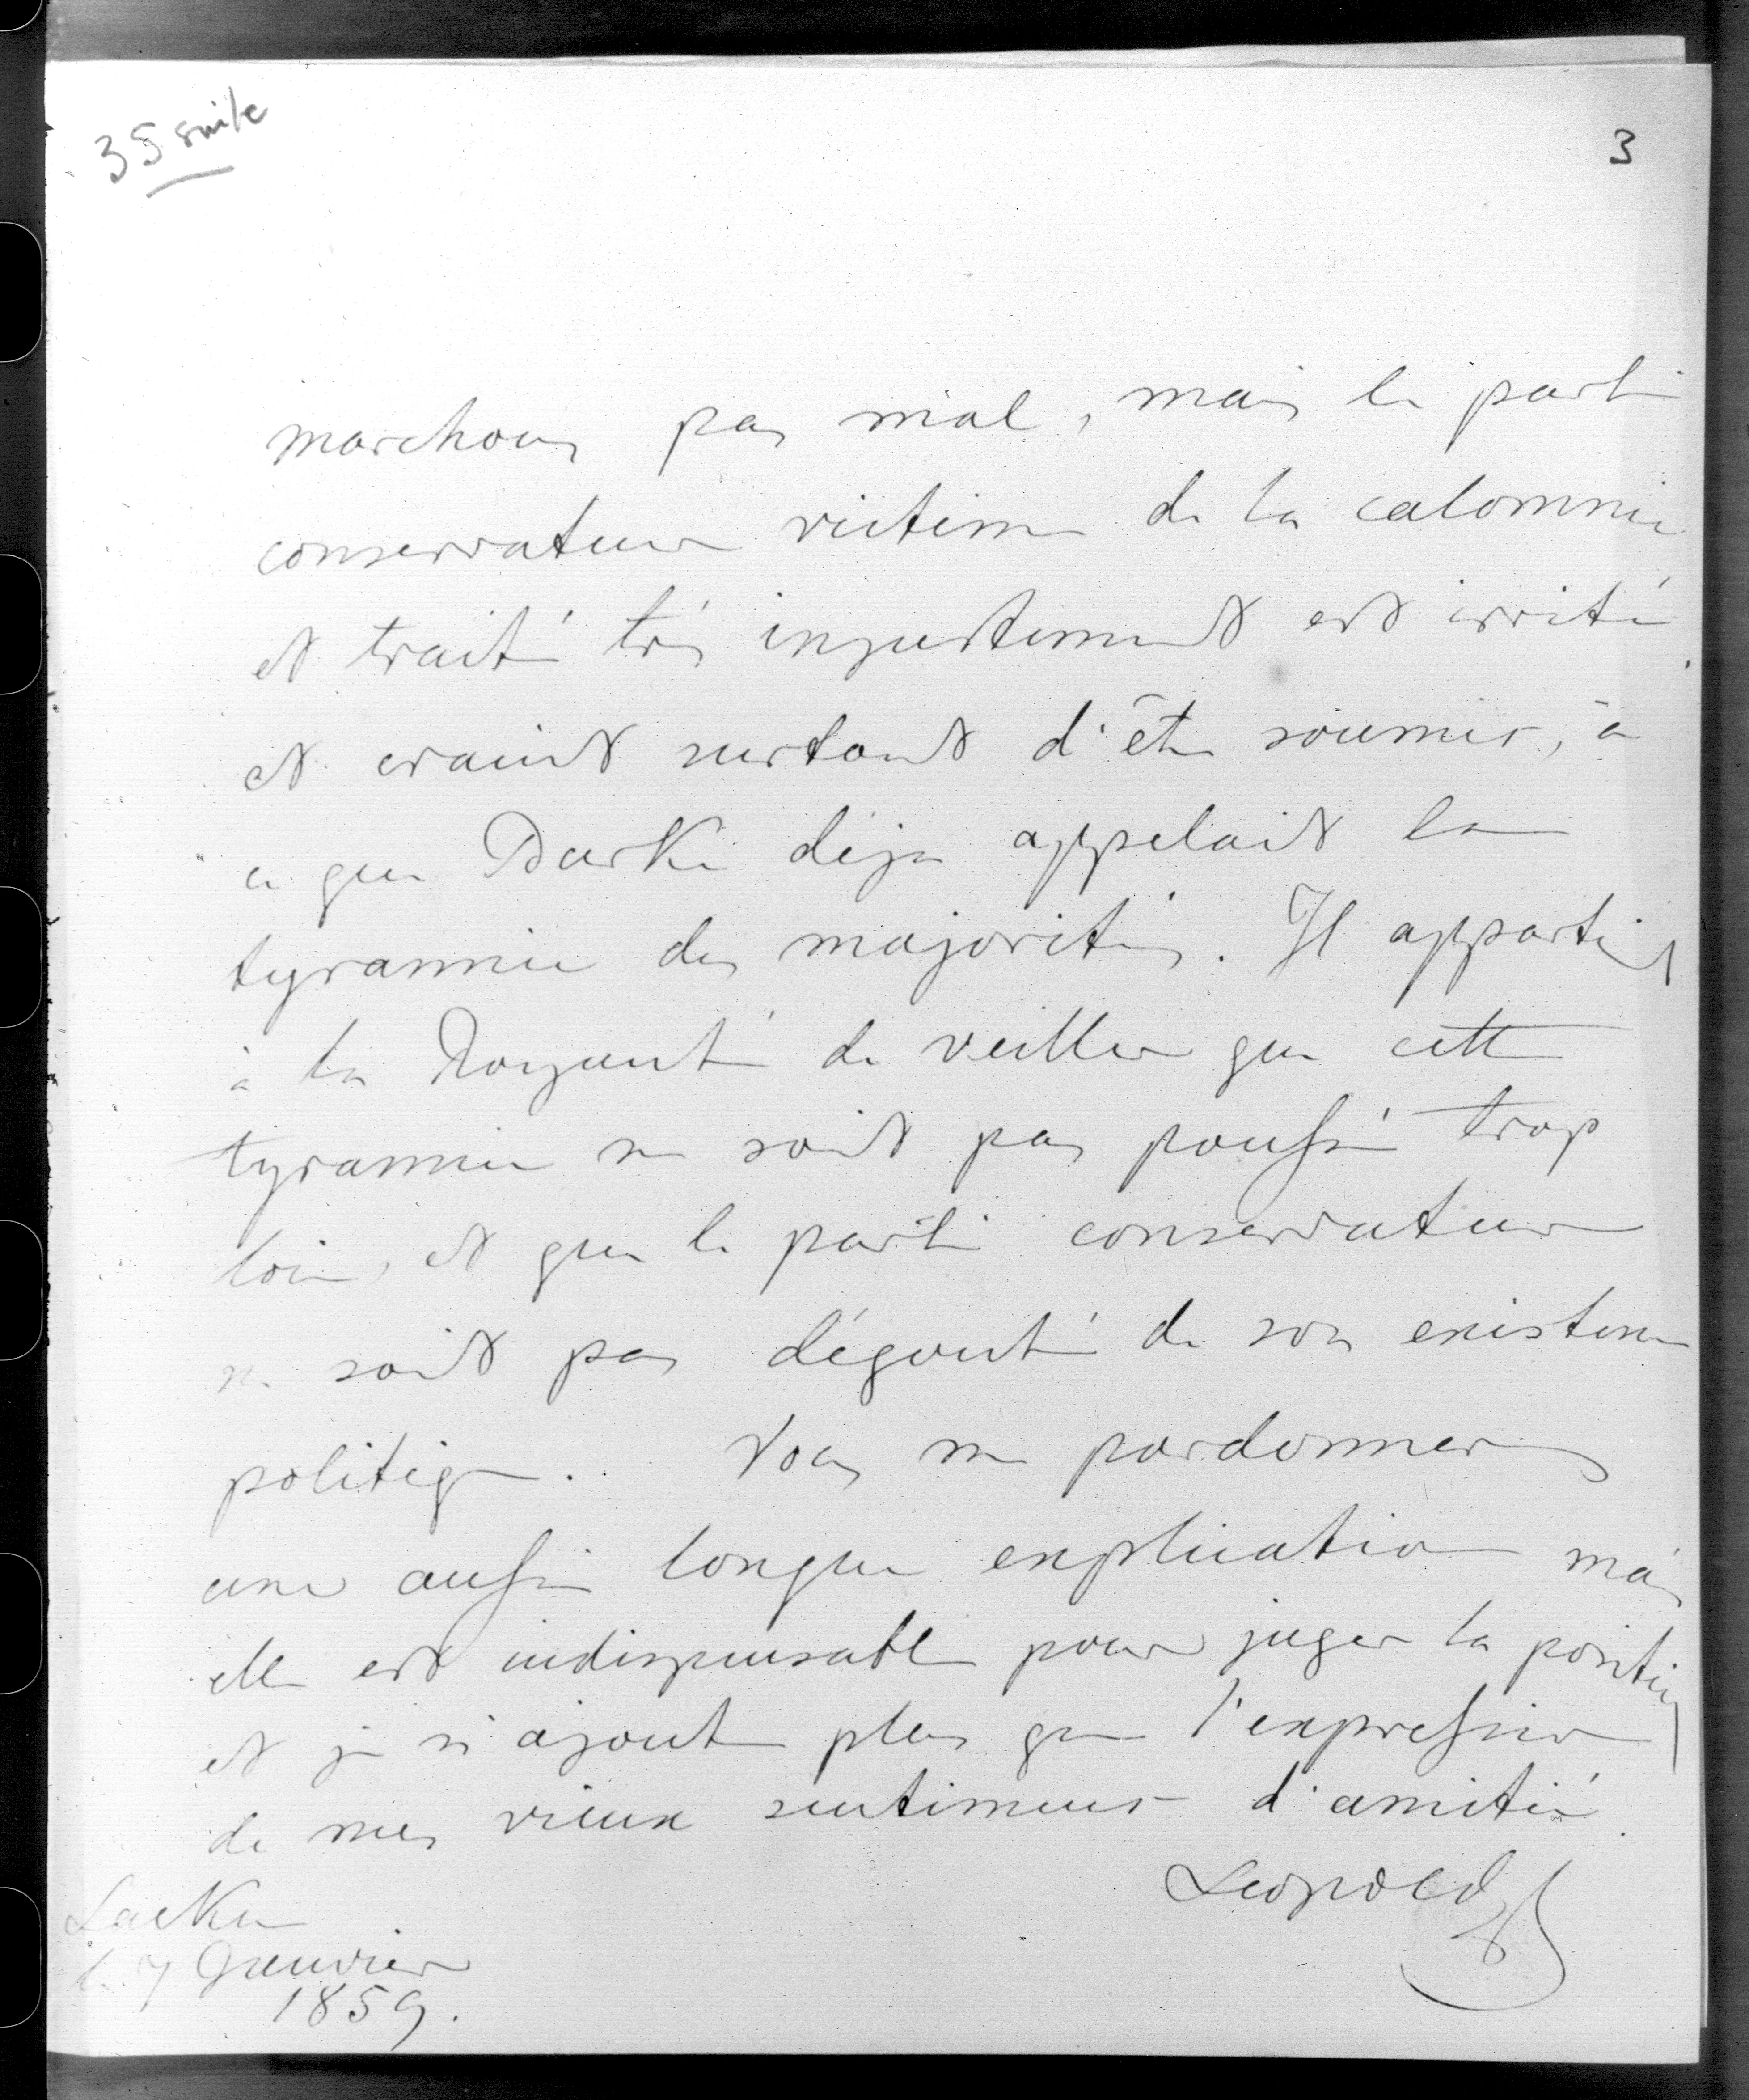 35 suite
3
marchons pas mal, mais le parti
conservateur victime de la calomnie
et traité très injustement est irrité
et craint surtout d'être soumis, à
ce que Burke déja appelait la
tyrannie des majorités. Il appartient
à la Royauté de veiller que cette
tyrannie ne soit pas poussée trop
loin, et que le parti conservateur
ne soit pas dégouté de son existence
politique. Vous me pardonnerez
une aussi longue explication mais
elle est indispensable pour juger la position
et je n'ajoute plus que l'expression
de mes vieux sentimens d'amitié.
Leopold
Laeken
le 7 Janvier
1859.